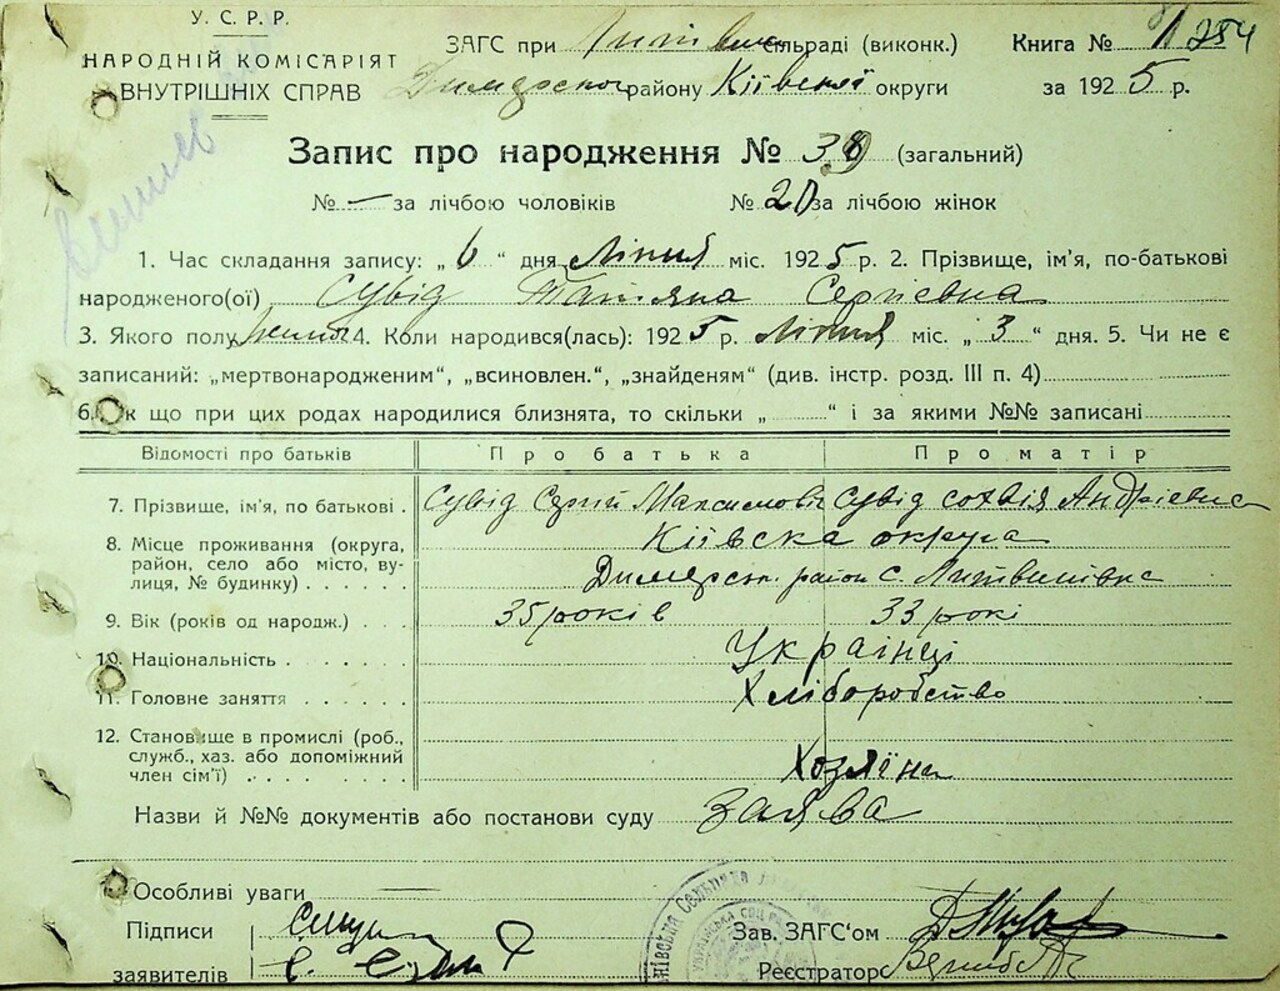 У. С. Р. Р.
НАРОДНІЙ КОМІСАРІЯТ
ВНУТРІШНІХ СПРАВ
ЗАГС при сільраді (виконк.)
Димерског району Київской округи
Книга №
за 1925 р.
Запис про народження № (загальний)
№ — за лічбою чоловіків № 20 за лічбою жінок
1. Час складання запису: „6“ дня Ліпня міс. 1925 р. 2. Прізвище, ім'я, по-батькові
народженого(ої) Сувід Татяна Сергієвна
3. Якого полу 4. Коли народився(лась): 1925 р. Ліпня міс. „3“ дня. 5. Чи не є
записаний: „мертвонародженим“, „всиновлен.“, „знайденям“ (див. інстр. розд. III п. 4)
6. Як що при цих родах народилися близнята, то скільки „ “ і за якими №№ записані
Відомості про батьків Про батька Про матір
7. Прізвище, ім'я, по батькові . Сувід Сергій Максимович Сувід Софвія Андрієвна
8. Місце проживання (округа, Київска округа
район, село або місто, ву-
лиця, № будинку) . . . . Димерск. район с.
9. Вік (років од народж.) . . . 35 років 33 рокі
10. Національність . . . . . . Українці
11. Головне заняття . . . . . . Хліборобство
12. Становище в промислі (роб.,
служб., хаз. або допоміжний
член сім'ї) . . . . . . . Хозяїна
Назви й №№ документів або постанови суду Заява
Особливі уваги
Підписи
заявителів
Зав. ЗАГС'ом
Реєстратор